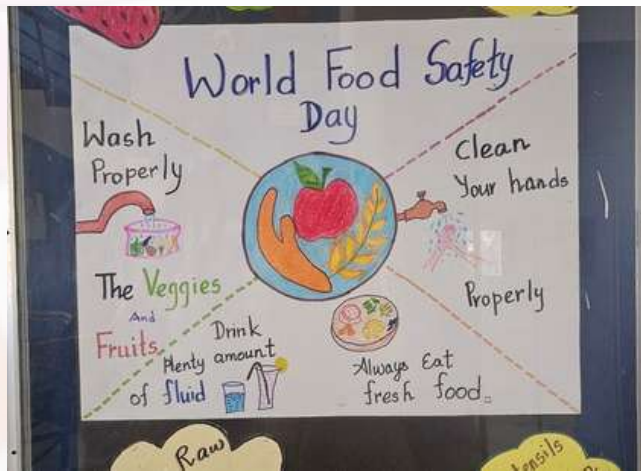 World Food Safety
Day
Wash
Properly
The Veggies
And
Fruits
Clean
Your hands
Properly
Drink
Plenty amount
of fluid
Always Eat
fresh food.
Raw